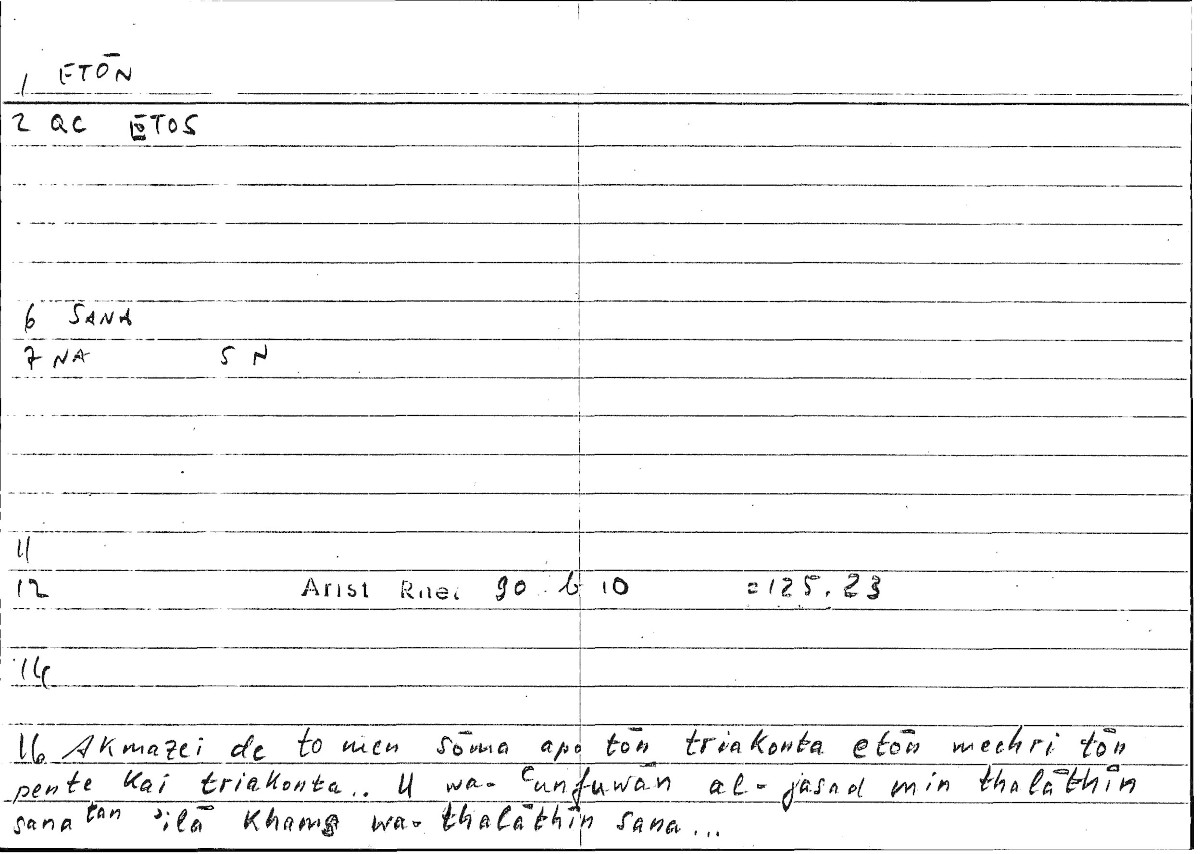 1 ETŌN
2 QC ETOS
6 SANA
7 NA S N
11
12 Arist Rhet 90 b 10 =125.23
14
16 Akmazei de to men sōma apo tōn triakonta etōn mechri tōn
pente kai triakonta.. 4 wa- ʿunfuwān al-jasad min thalāthīn
sanatan ʾilā khams wa-thalāthīn sana...